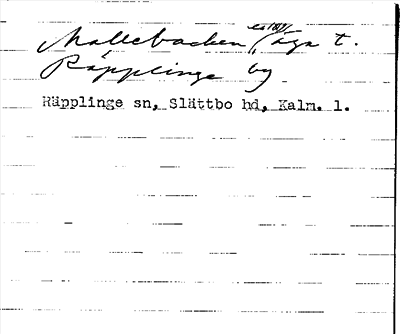 Mallebacken, äga t.
Räpplinge by
Räpplinge sn, Slättbo hd, Kalm. l.